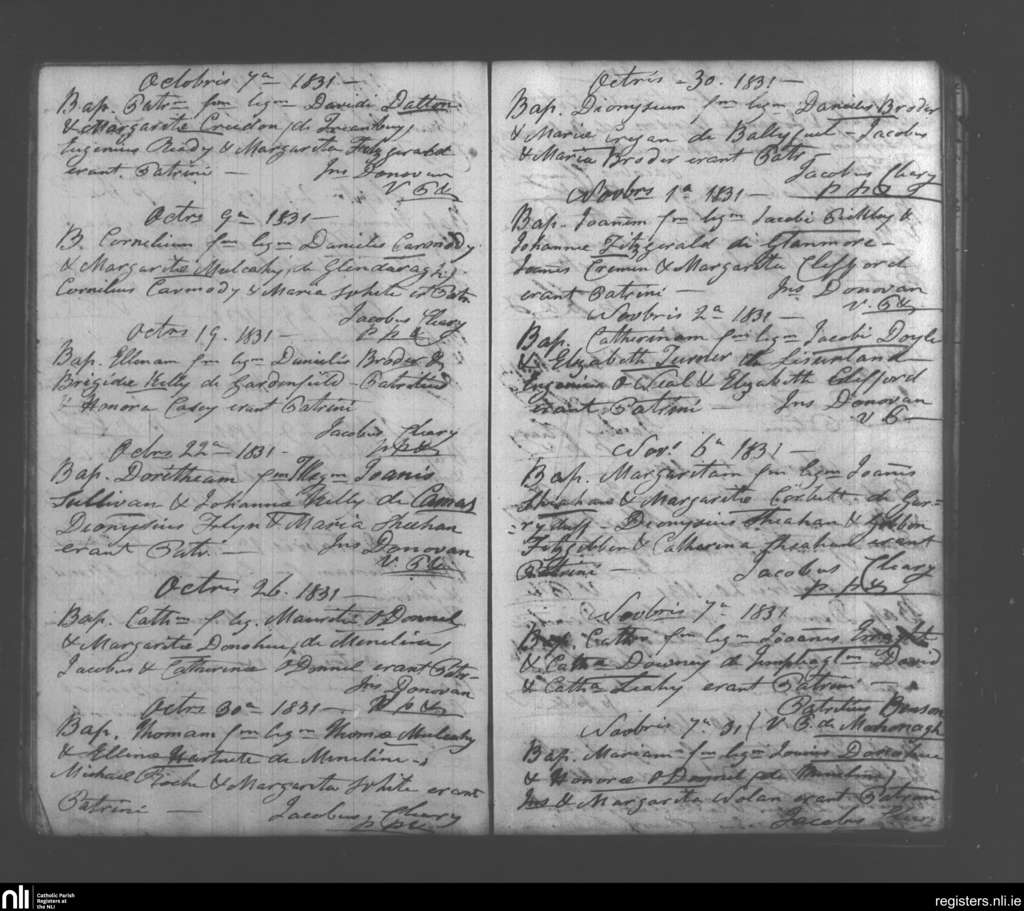 Octobris 7a 1831 —
Bap. Patm fm legm Davidi Dalton
& Margaritæ Creedon de
Eugenius Ready & Margarita Fitzgerald
erant Patrini — Jns Donovan
V. P &
Octrs 9a 1831 —
B. Cornelium fm legm Danielis Carmody
& Margaritæ Mulcahy de Glendaragh
Cornelius Carmody & Maria White et Patr
Jacobus Cleary
p p &
Octrs 19. 1831 —
Bap. Ellenam fm legm Danielis Broder &
Brigidæ Kelly de Gardenfield - Patritius
& Honora Casey erant Patrini
Jacobus Cleary
p p &
Octrs 22a 1831 -
Bap. Doretheam fm legm Joanis
Sullivan & Johannæ Kelly de Camas
Dionysius Flyn & Maria Sheehan
erant Patr. — Jns Donovan
V. P &
Octris 26. 1831 —
Bap. Cathm f. leg. Mauritii O Donnel
& Margaritæ Donohue, de Meneline,
Jacobus & Catharina O Donnel erant Patr-
Jns Donovan
p &
Octrs 30a 1831 —
Bap. Thomam fm legm Thomæ Mulcahy
& Ellenæ Hartnete de Meneline
Michael Roche & Margarita White erant
Patrini — Jacobus Cleary
p p &
Octris - 30. 1831 —
Bap. Dionysium fm legm Danielis Broder
& Mariæ Cregan de - Jacobus
& Maria Broder erant Patr
Jacobus Cleary
p p &
Novbrs 1a 1831 —
Bap. Joanem fm legm Jacobi &
Johannæ Fitzgerald de Glanmore -
Joanes Cremin & Margarita Clifford
erant Patrini — Jns Donovan
V. P &
Novbris 2a 1831 —
Bap. Catherinam fm legm Jacobi Doyle
& Elizabeth Turner de
O Neal & Elyzabeth Clifford
erant Patrini — Jns Donovan
V. P —
Novr 6a 1831 —
Bap. Margaritam fm legm Joannis
Sheahan & Margaritæ Corbett de Gar=
=ryduff — Dionysius Sheahan & Gibbon
Fitzgibbon & Catharina Sheahan erant
Patrini — Jacobus Cleary
p p &
Novbris 7a 1831
Bap. Cathm fm legm Joannis
& Catha Downey de David
& Catha Leahy erant Patrini —
Patritius Benson
Novbris 7a 31 V. P. de Mahonagh
Bap. Mariam fm legm Donohue
& Honoræ O Donnel de Meneline
Jns & Margarita Nolan erant Patrini
Jacobus
nli Catholic Parish
Registers at
the NLI
registers.nli.ie